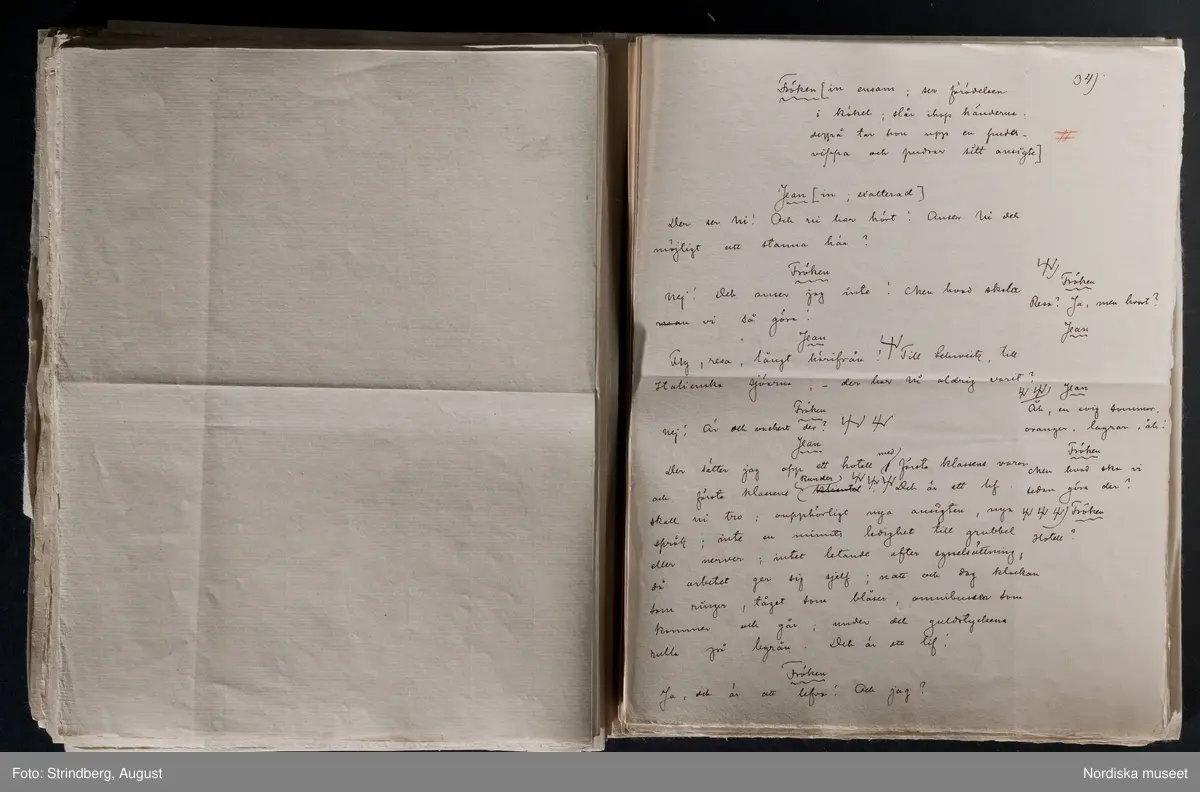 34)
Fröken [in ensam; ser förödelsen
i köket; slår ihop händerna;
derpå tar hon upp en puder-
vippa och pudrar sitt ansigte]
#
Jean [in; exalterad]
Der ser Ni! Och ni har hört! Anser Ni det
möjligt att stanna här?
Fröken
Nej! Det anser jag inte! Men hvad skola
man vi så göra!
Jean
Fly, resa, långt härifrån! Till Schweitz, till
Italienska sjöarna; – der har Ni aldrig varit?
Fröken
Nej! Är det vackert der?
Jean
Der sätter jag opp ett hotell med första klassens varor
och första klassens kunder! Det är ett lif
skall ni tro; oupphörligt nya ansigten, nya
språk; inte en minuts ledighet till grubbel
eller nerver; intet letande efter sysselsättning,
då arbetet ger sig sjelf; natt och dag klockan
som ringer, tåget som blåser, omnibussen som
kommer och går; under det guldstyckena
rulla på byrån. Det är ett lif!
Fröken
Ja, det är att lefva! Och jag?
Fröken
Resa? Ja, men hvart?
Jean
Jean
Åh, en evig sommar,
oranger, lagrar, åh!
Fröken
Men hvad ska vi
sedan göra der?
Fröken
Hotell?
Foto: Strindberg, August
Nordiska museet